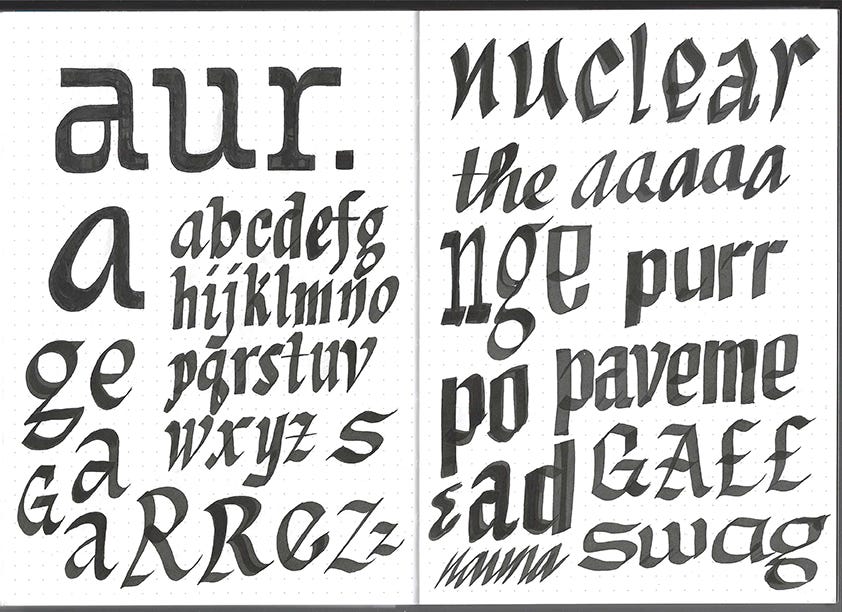 aur.
a
abcdefg
hijklmno
pqrstuv
wxyz s
ge
a
G
aRRezz
nuclear
the aaaaa
nge purr
po paveme
ɛad GAEE
swag
nauna